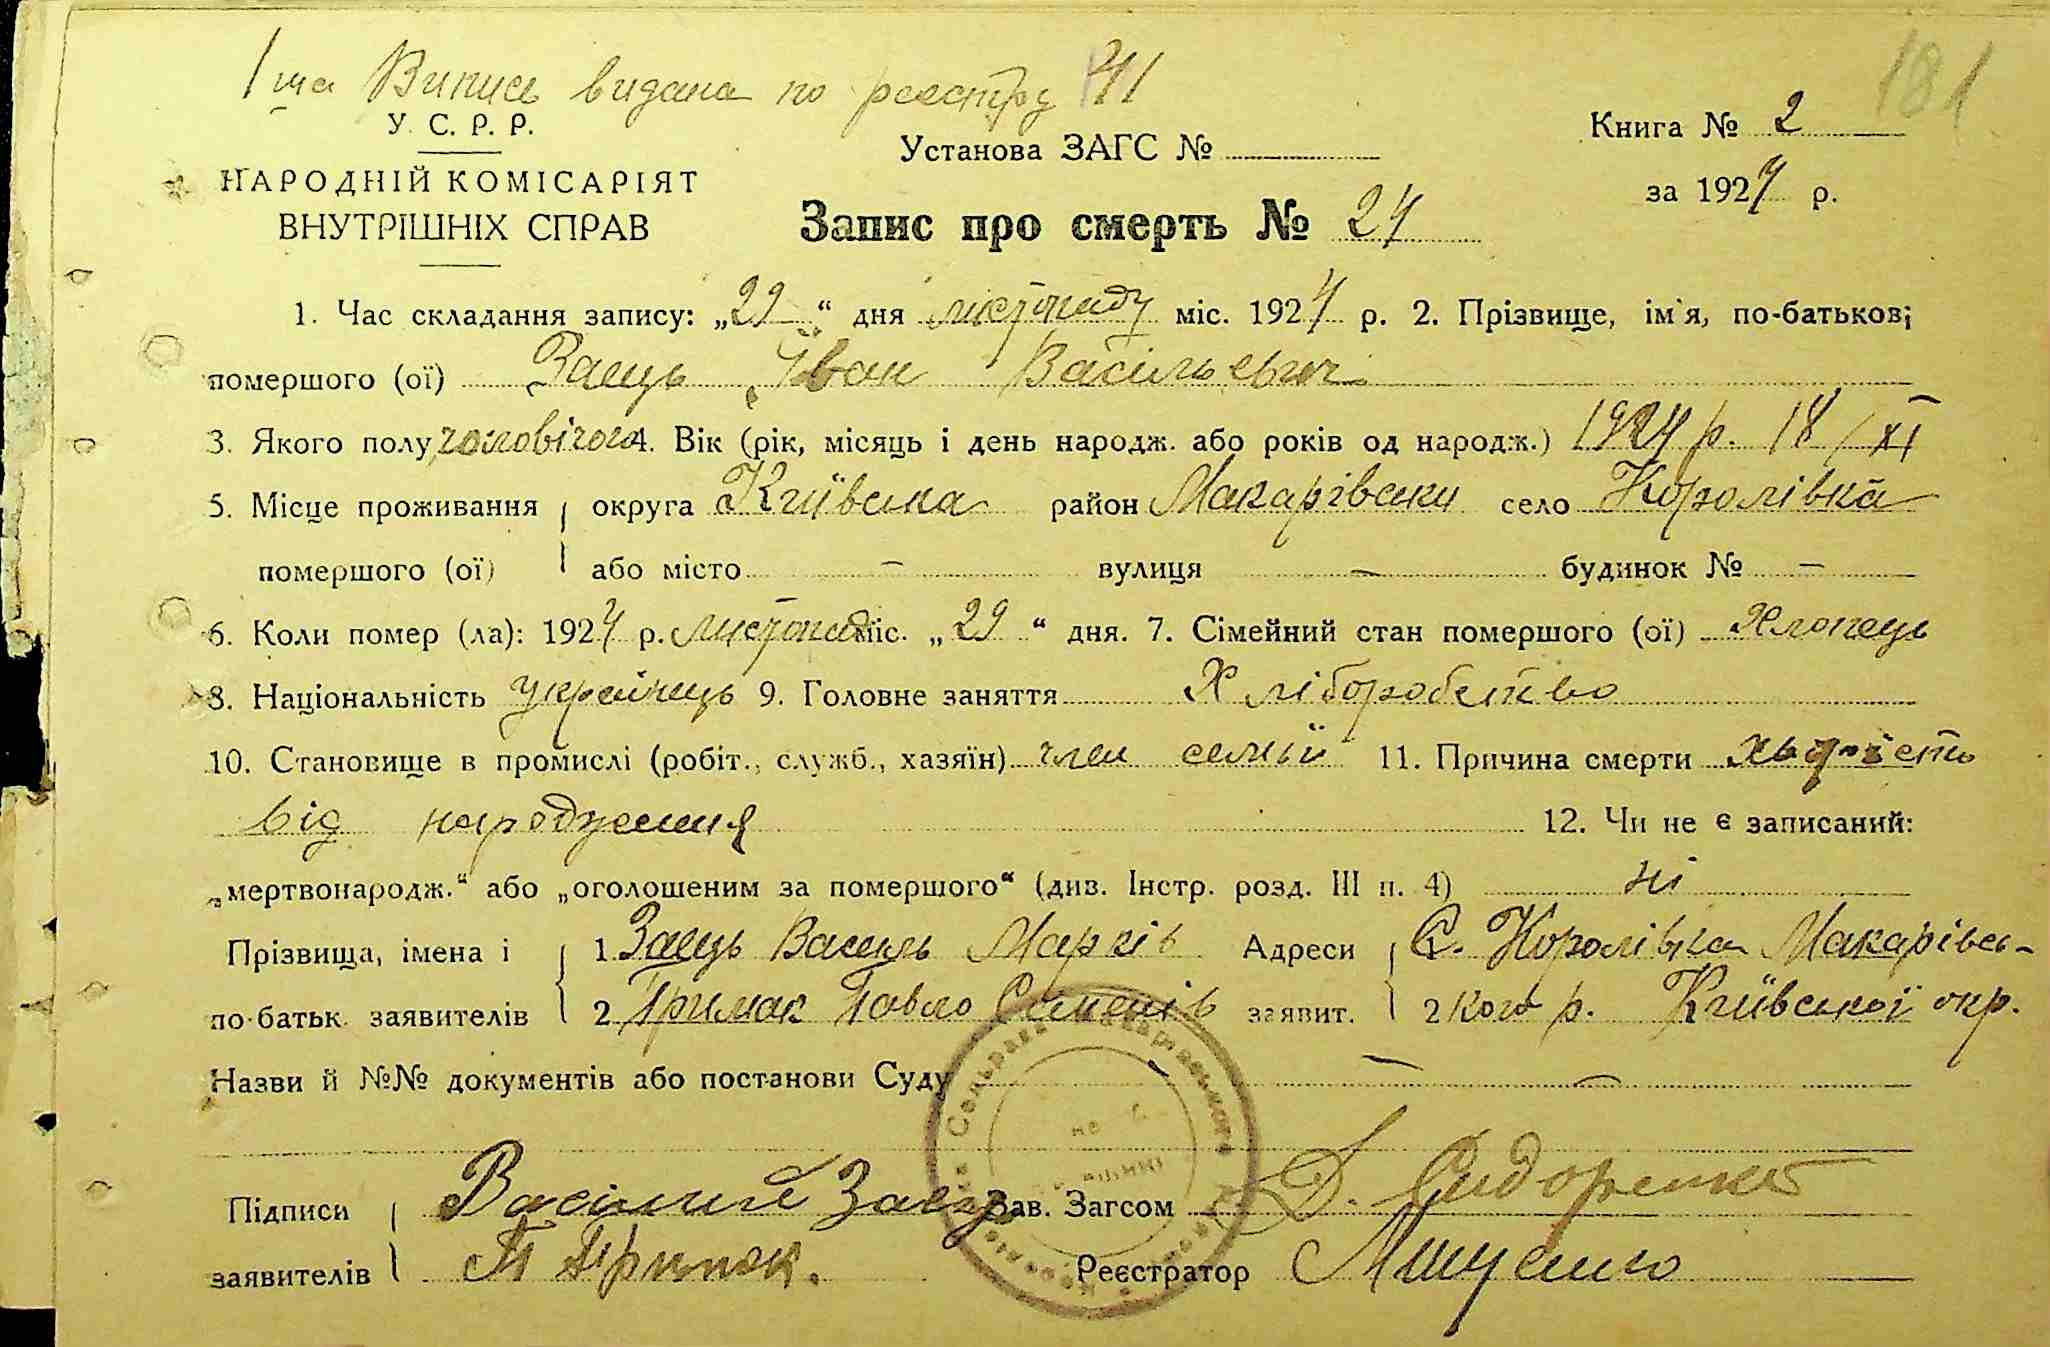 1ша Випись видана по реєстру 41
181
У. С. Р. Р.
НАРОДНІЙ КОМІСАРІЯТ
ВНУТРІШНІХ СПРАВ
Установа ЗАГС №
Книга № 2
за 1924 р.
Запис про смерть № 24
1. Час складання запису: „29“ дня лістопаду міс. 1924 р. 2. Прізвище, ім'я, по-батькові
помершого (ої) Заєць Іван Васільевич
3. Якого полу чоловічого 4. Вік (рік, місяць і день народж. або років од народж.) 1924 р. 18/XI
5. Місце проживання округа Київська район Макарівськи село Королівка
помершого (ої) або місто — вулиця — будинок № —
6. Коли помер (ла): 1924 р. листопад міс. „29“ дня. 7. Сімейний стан помершого (ої) Хлопець
8. Національність українець 9. Головне заняття Хліборобство
10. Становище в промислі (робіт., служб., хазяїн) член семьї 11. Причина смерти
від народження 12. Чи не є записаний:
„мертвонародж.“ або „оголошеним за помершого“ (див. Інстр. розд. III п. 4) ні
Прізвища, імена і 1 Заєць Василь Марків Адреси С. Королівка Макарівсь-
по-батьк. заявителів 2 Примак Павло Семенів заявит. 2 кого р. Київської окр.
Назви й №№ документів або постанови Суду — —
Підписи Васілий Заєць Зав. Загсом Д. Сидоренко
заявителів П Примак. Реєстратор